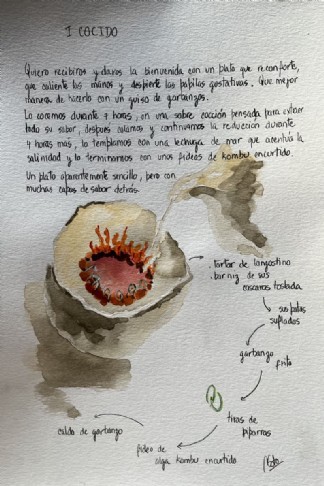 1 COCIDO
Quiero recibiros y daros la bienvenida con un plato que reconforte,
que caliente las manos y despierte las papilas gustativas. Que mejor
manera de hacerlo con un guiso de garbanzos.
Lo cocemos durante 7 horas, en una sobre cocción pensada para extraer
todo su sabor, después colamos y continuamos la reducción durante
4 horas mas, lo templamos con una lechuga de mar que acentúa la
salinidad y lo terminamos con unos fideos de kombu encurtido.
Un plato aparentemente sencillo, pero con
muchas capas de sabor detrás.
. tartar de langostino
. barniz de sus
cascaras tostada
sus patas
sufladas
garbanzo
frito
tiras de
piparras
fideo de
alga kombu encurtido
caldo de garbanzo